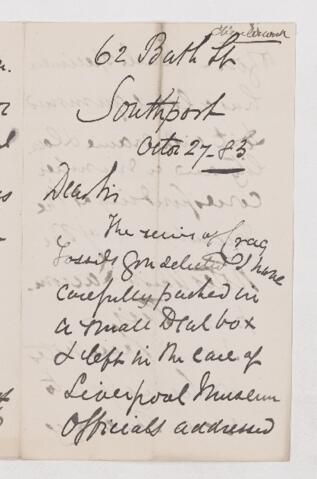 62 Bath St
Southport
Octor 27 - 83
Dear Sir
The series of Crag
Fossils you selected I have
carefully packed in
a small Deal box
& left in the care of
Liverpool Museum
Officials addressed